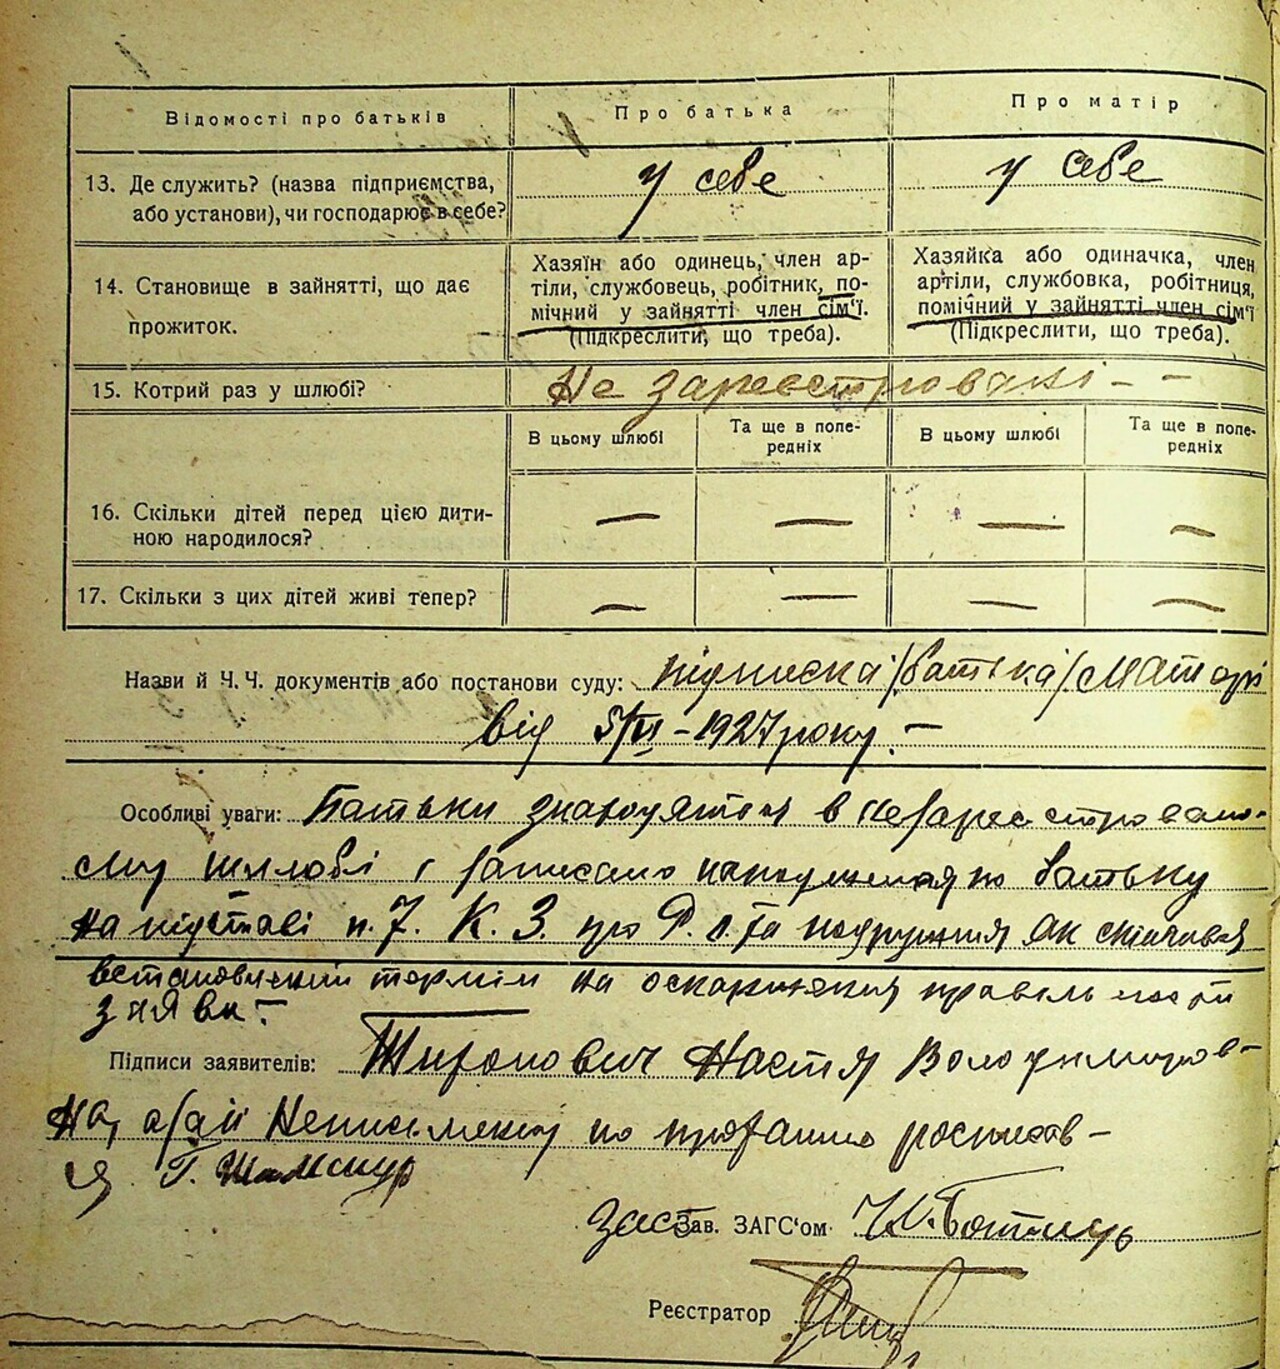 Відомості про батьків
Про батька
Про матір
13. Де служить? (назва підприємства,
або установи), чи господарює в себе?
у себе
у себе
14. Становище в зайнятті, що дає
прожиток.
Хазяїн або одинець, член ар-
тіли, службовець, робітник, по-
мічний у зайнятті член сім'ї.
(Підкреслити, що треба).
Хазяйка або одиначка, член
артіли, службовка, робітниця,
помічний у зайнятті член сім'ї
(Підкреслити, що треба).
15. Котрий раз у шлюбі?
Не зареєстровані - -
В цьому шлюбі
Та ще в попе-
редніх
В цьому шлюбі
Та ще в попе-
редніх
16. Скільки дітей перед цією дити-
ною народилося?
— — — —
17. Скільки з цих дітей живі тепер?
— — — —
Назви й Ч. Ч. документів або постанови суду: підписка /батька/ Матері
від 5/VI - 1927 року. -
Особливі уваги: Батьки знаходяться в незареєстровано-
му шлюбі і записано по батьку
на підставі п. 7. К. З. про Р. о. та подружжя як скінчився
встановлений термін на оскарження правельности
заяви. -
Підписи заявителів: Настя Володимиров-
на, а за її Неписьменну по проханню росписав-
ся Г.
Заст Зав. ЗАГС'ом
Реєстратор